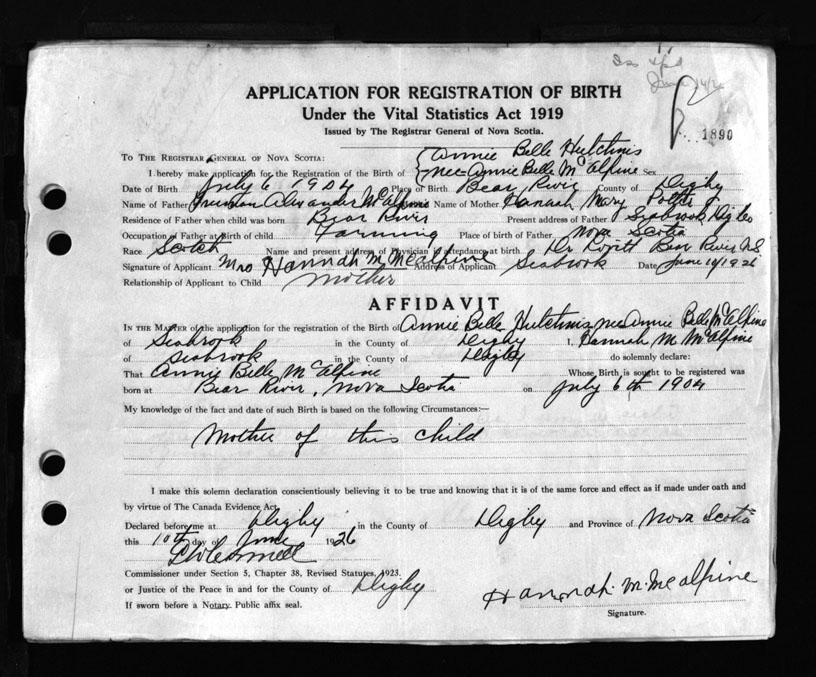 APPLICATION FOR REGISTRATION OF BIRTH
Under the Vital Statistics Act 1919
Issued by The Registrar General of Nova Scotia.
1890
Annie Belle Hutchins
TO THE REGISTRAR GENERAL OF NOVA SCOTIA:
I hereby make application for the Registration of the Birth of nee Annie Belle McAlpine Sex
Date of Birth July 6 1904 Place of Birth Bear River County of Digby
Name of Father Alexander McAlpine Name of Mother Hannah Mary Potter
Residence of Father when child was born Bear River Present address of Father Seabrook Digby Co
Occupation of Father at Birth of child Farming Place of birth of Father Nova Scotia
Race Scotch Name and present address of Physician in attendance at birth Dr Lovitt Bear River N.S
Signature of Applicant Mrs Hannah M McAlpine Address of Applicant Seabrook Date June 10/1926
Relationship of Applicant to Child mother
AFFIDAVIT
IN THE MATTER of the application for the registration of the Birth of Annie Belle Hutchins nee Annie Belle McAlpine
of Seabrook in the County of Digby I, Hannah M McAlpine
of Seabrook in the County of Digby do solemnly declare:
That Annie Belle McAlpine Whose Birth is sought to be registered was
born at Bear River, Nova Scotia on July 6th 1904
My knowledge of the fact and date of such Birth is based on the following Circumstances:—
Mother of this child
I make this solemn declaration conscientiously believing it to be true and knowing that it is of the same force and effect as if made under oath and
by virtue of The Canada Evidence Act.
Declared before me at Digby in the County of Digby and Province of Nova Scotia
this 10th day of June 1926
Commissioner under Section 5, Chapter 38, Revised Statutes, 1923.
or Justice of the Peace in and for the County of Digby
If sworn before a Notary Public affix seal.
Hannah. M. McAlpine
Signature.